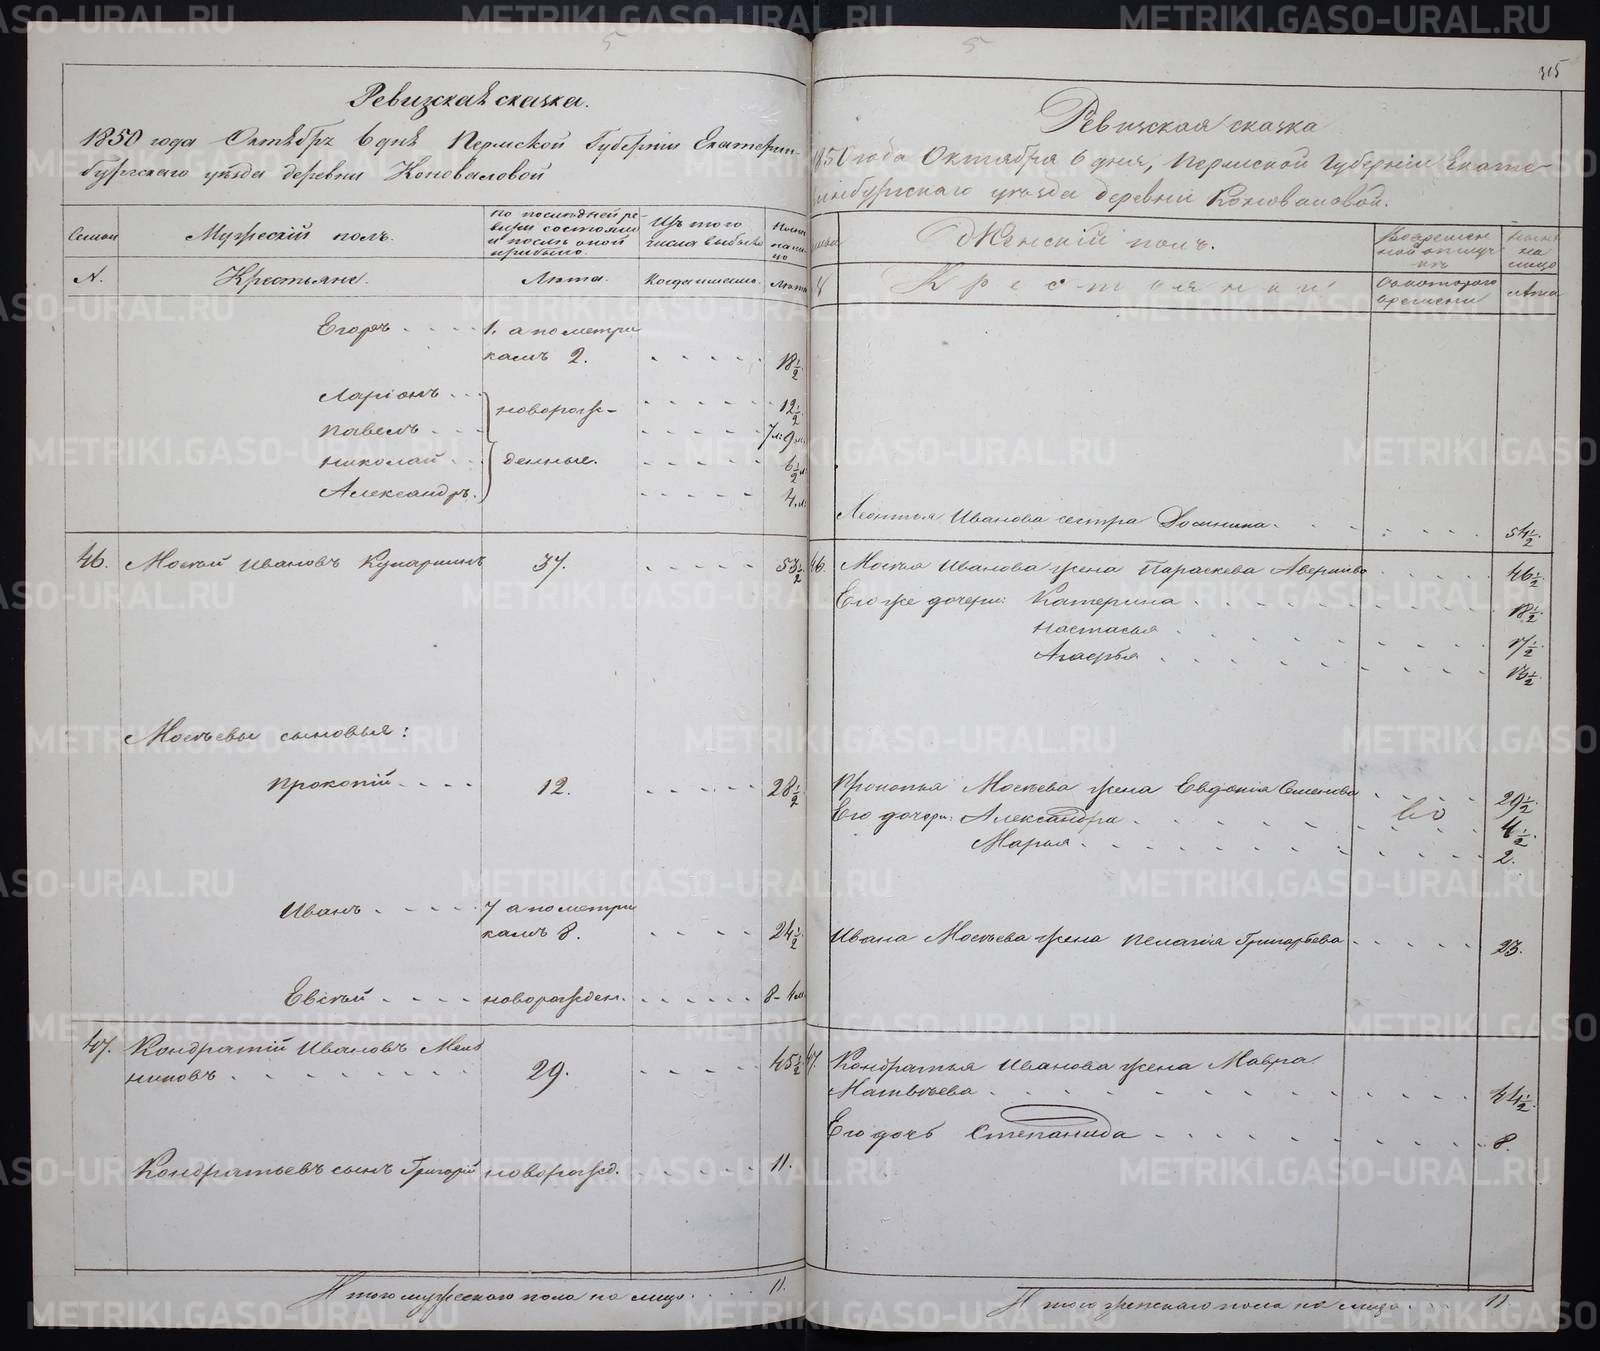 5
Ревизская сказка.
1850 года Октября 6 дня Пермской Губернiи Екатерин-
бургскаго уѣзда деревни Коноваловой
Семьи
Мужескiй полъ.
По послѣдней ре-
визiи состояло
и послѣ оной
прибыло.
Изъ того
числа выбыло
Ныне
на ли-
цо
N.
Крестьяне.
Лѣта.
Когда именно.
Лѣта
Егоръ 1. а по метри
камъ 2. 18 1/2
Ларiонъ 12 1/2
новорож-
Павелъ 7 л: 9 м.
Николай денные. 6 1/2 л.
Александръ. 4 л.
46. Мосѣй Ивановъ Купаринъ 37. 53 1/2
Мосѣевы сыновья:
Прокопiй 12. 28 1/2
Иванъ 7 а по метри
камъ 8. 24 1/2
Евсѣй новорожден. 8 - 4 м.
47. Кондратiй Ивановъ Мель
никовъ 29. 45 1/2
Кондратьевъ сынъ Григорiй новорожд. 11.
Итого мужескаго пола на лицо 11.
5
315
Ревизская сказка
1850 года Октября 6 дня, Пермской Губернiи Екате-
ринбургскаго уѣзда деревни Коноваловой.
Женскiй полъ.
Во времен
ной отлуч
кѣ
Ныне
на
лицо
Крестьянки
Съ котораго
времени
Лѣта
Леонтья Иванова сестра Домника. 54 1/2.
46. Мосѣя Иванова жена Параскева Аверкiева 46 1/2.
Его же дочери: Катерина 18 1/2.
Настасья 17 1/2.
Агафья 13 1/2.
Прокопья Мосѣева жена Евдокiя Семенова 29 1/2.
Его дочери: Александра 4 1/2.
Марья. 2.
Ивана Мосѣева жена Пелагiя Григорьева 23.
47. Кондратья Иванова жена Мавра
Матвѣева 44 1/2.
Его дочь Степанида 8.
Итого женскаго пола на лицо 11
METRIKI.GASO-URAL.RU